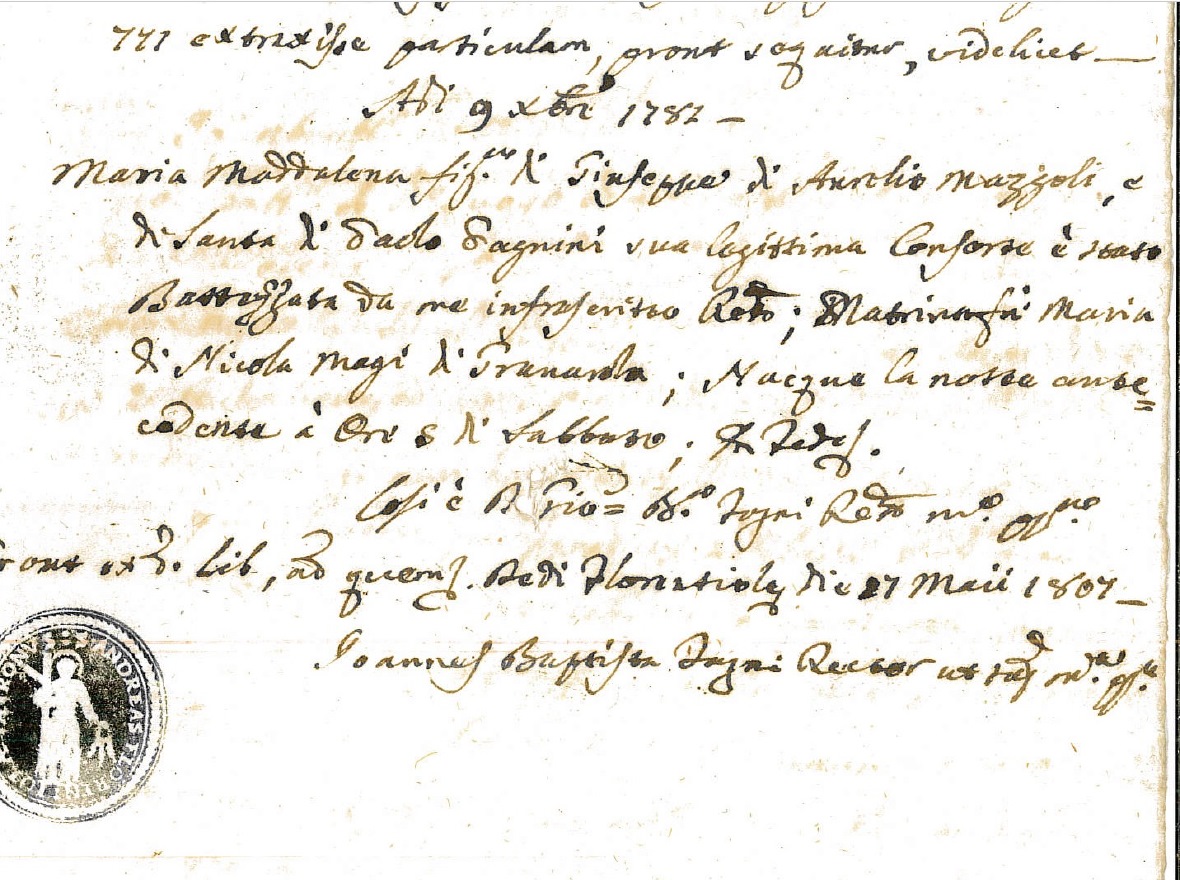 771 extraxisse particulam, prout sequitur, videlicet —
Adi 9 Xbre 1782 —
Maria Maddalena fig.a di Giuseppe di Aurelio Mazzoli, e
di Santa di Paolo Pagnini sua legittima Consorte è stata
Battezzata da me infrascritto Rett.; Matrina fù Maria
di Nicola Magi di Granarola; Nacque la notte ante=
cedente à Ore 8 di Sabbato;
Così è D Gio= B.a Tagni Rett. m.o pp.a
Prout ex d. Lib, ad quem. Redi Florentiole die 27 Maii 1807 —
Joannes Baptista Tagni Rector ut m.u pp.a
ANDREAS